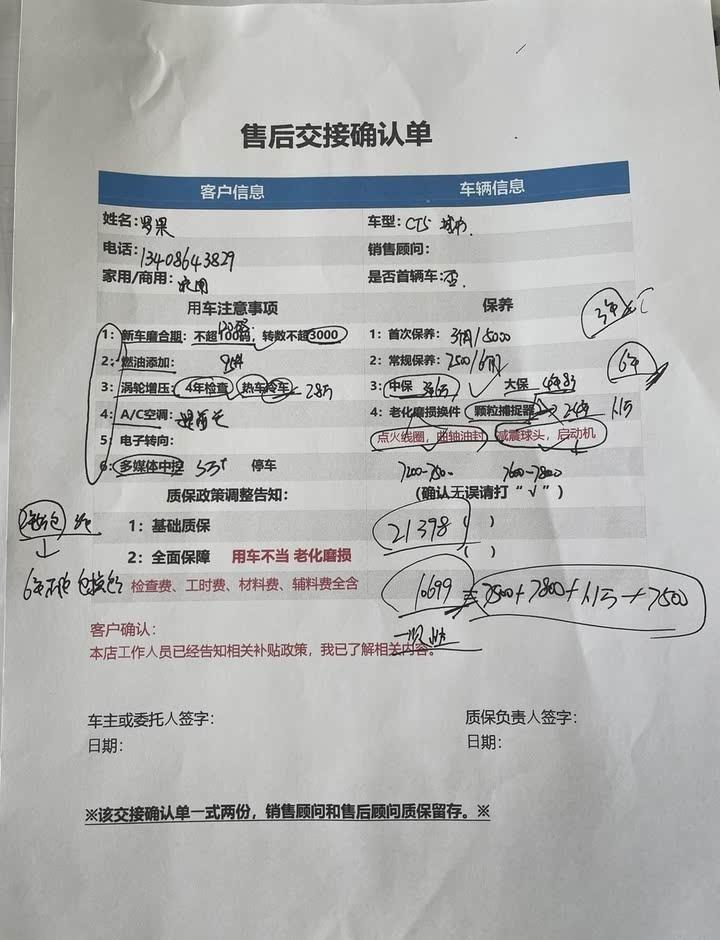 售后交接确认单
客户信息 车辆信息
姓名: 罗果 车型: CT5
电话: 13408643829 销售顾问:
家用/商用: 家用 是否首辆车: 否
用车注意事项 保养
3年
1: 新车磨合期: 不超100码, 转数不超3000 1: 首次保养: 3月/5000
2: 燃油添加: 95# 2: 常规保养: 7500/6月
6年
3: 涡轮增压: 4年检查 热车冷车 3: 中保 大保
4: A/C空调: 4: 老化磨损换件 颗粒捕捉器 1.1万
5: 电子转向: 点火线圈, 曲轴油封 减震球头, 启动机
6: 多媒体中控 5万 停车
7200-7500 7600-7800
质保政策调整告知: (确认无误请打“√”)
1: 基础质保 21398 ( )
2: 全面保障 用车不当 老化磨损 ( )
检查费、工时费、材料费、辅料费全含
10699 = 7500+7800+1.1万+7500
客户确认:
本店工作人员已经告知相关补贴政策, 我已了解相关内容。
车主或委托人签字: 质保负责人签字:
日期: 日期:
※该交接确认单一式两份, 销售顾问和售后顾问质保留存。※